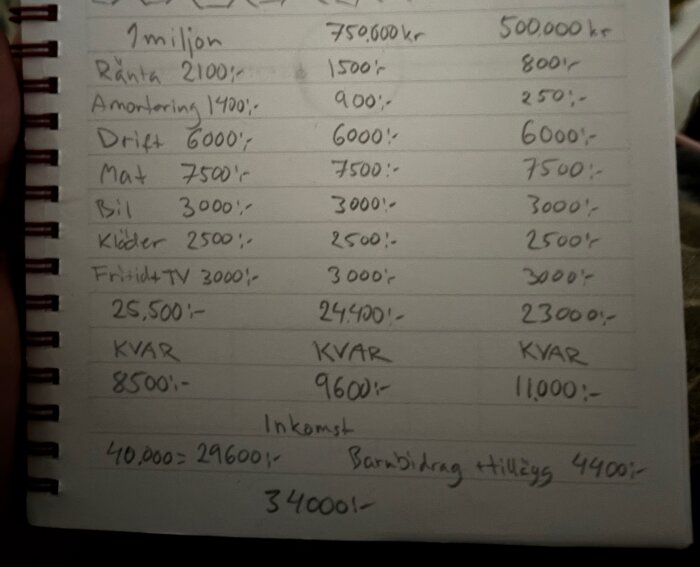 1 miljon 750,000 kr 500.000 kr
Ränta 2100:- 1500:- 800:-
Amortering 1400:- 900:- 250:-
Drift 6000:- 6000:- 6000:-
Mat 7500:- 7500:- 7500:-
Bil 3000:- 3000:- 3000:-
Kläder 2500:- 2500:- 2500:-
Fritid+TV 3000:- 3000:- 3000:-
25,500:- 24.400:- 23000:-
KVAR KVAR KVAR
8500:- 9600:- 11,000:-
Inkomst
40,000 = 29600:- Barnbidrag +tillägg 4400:-
34000:-